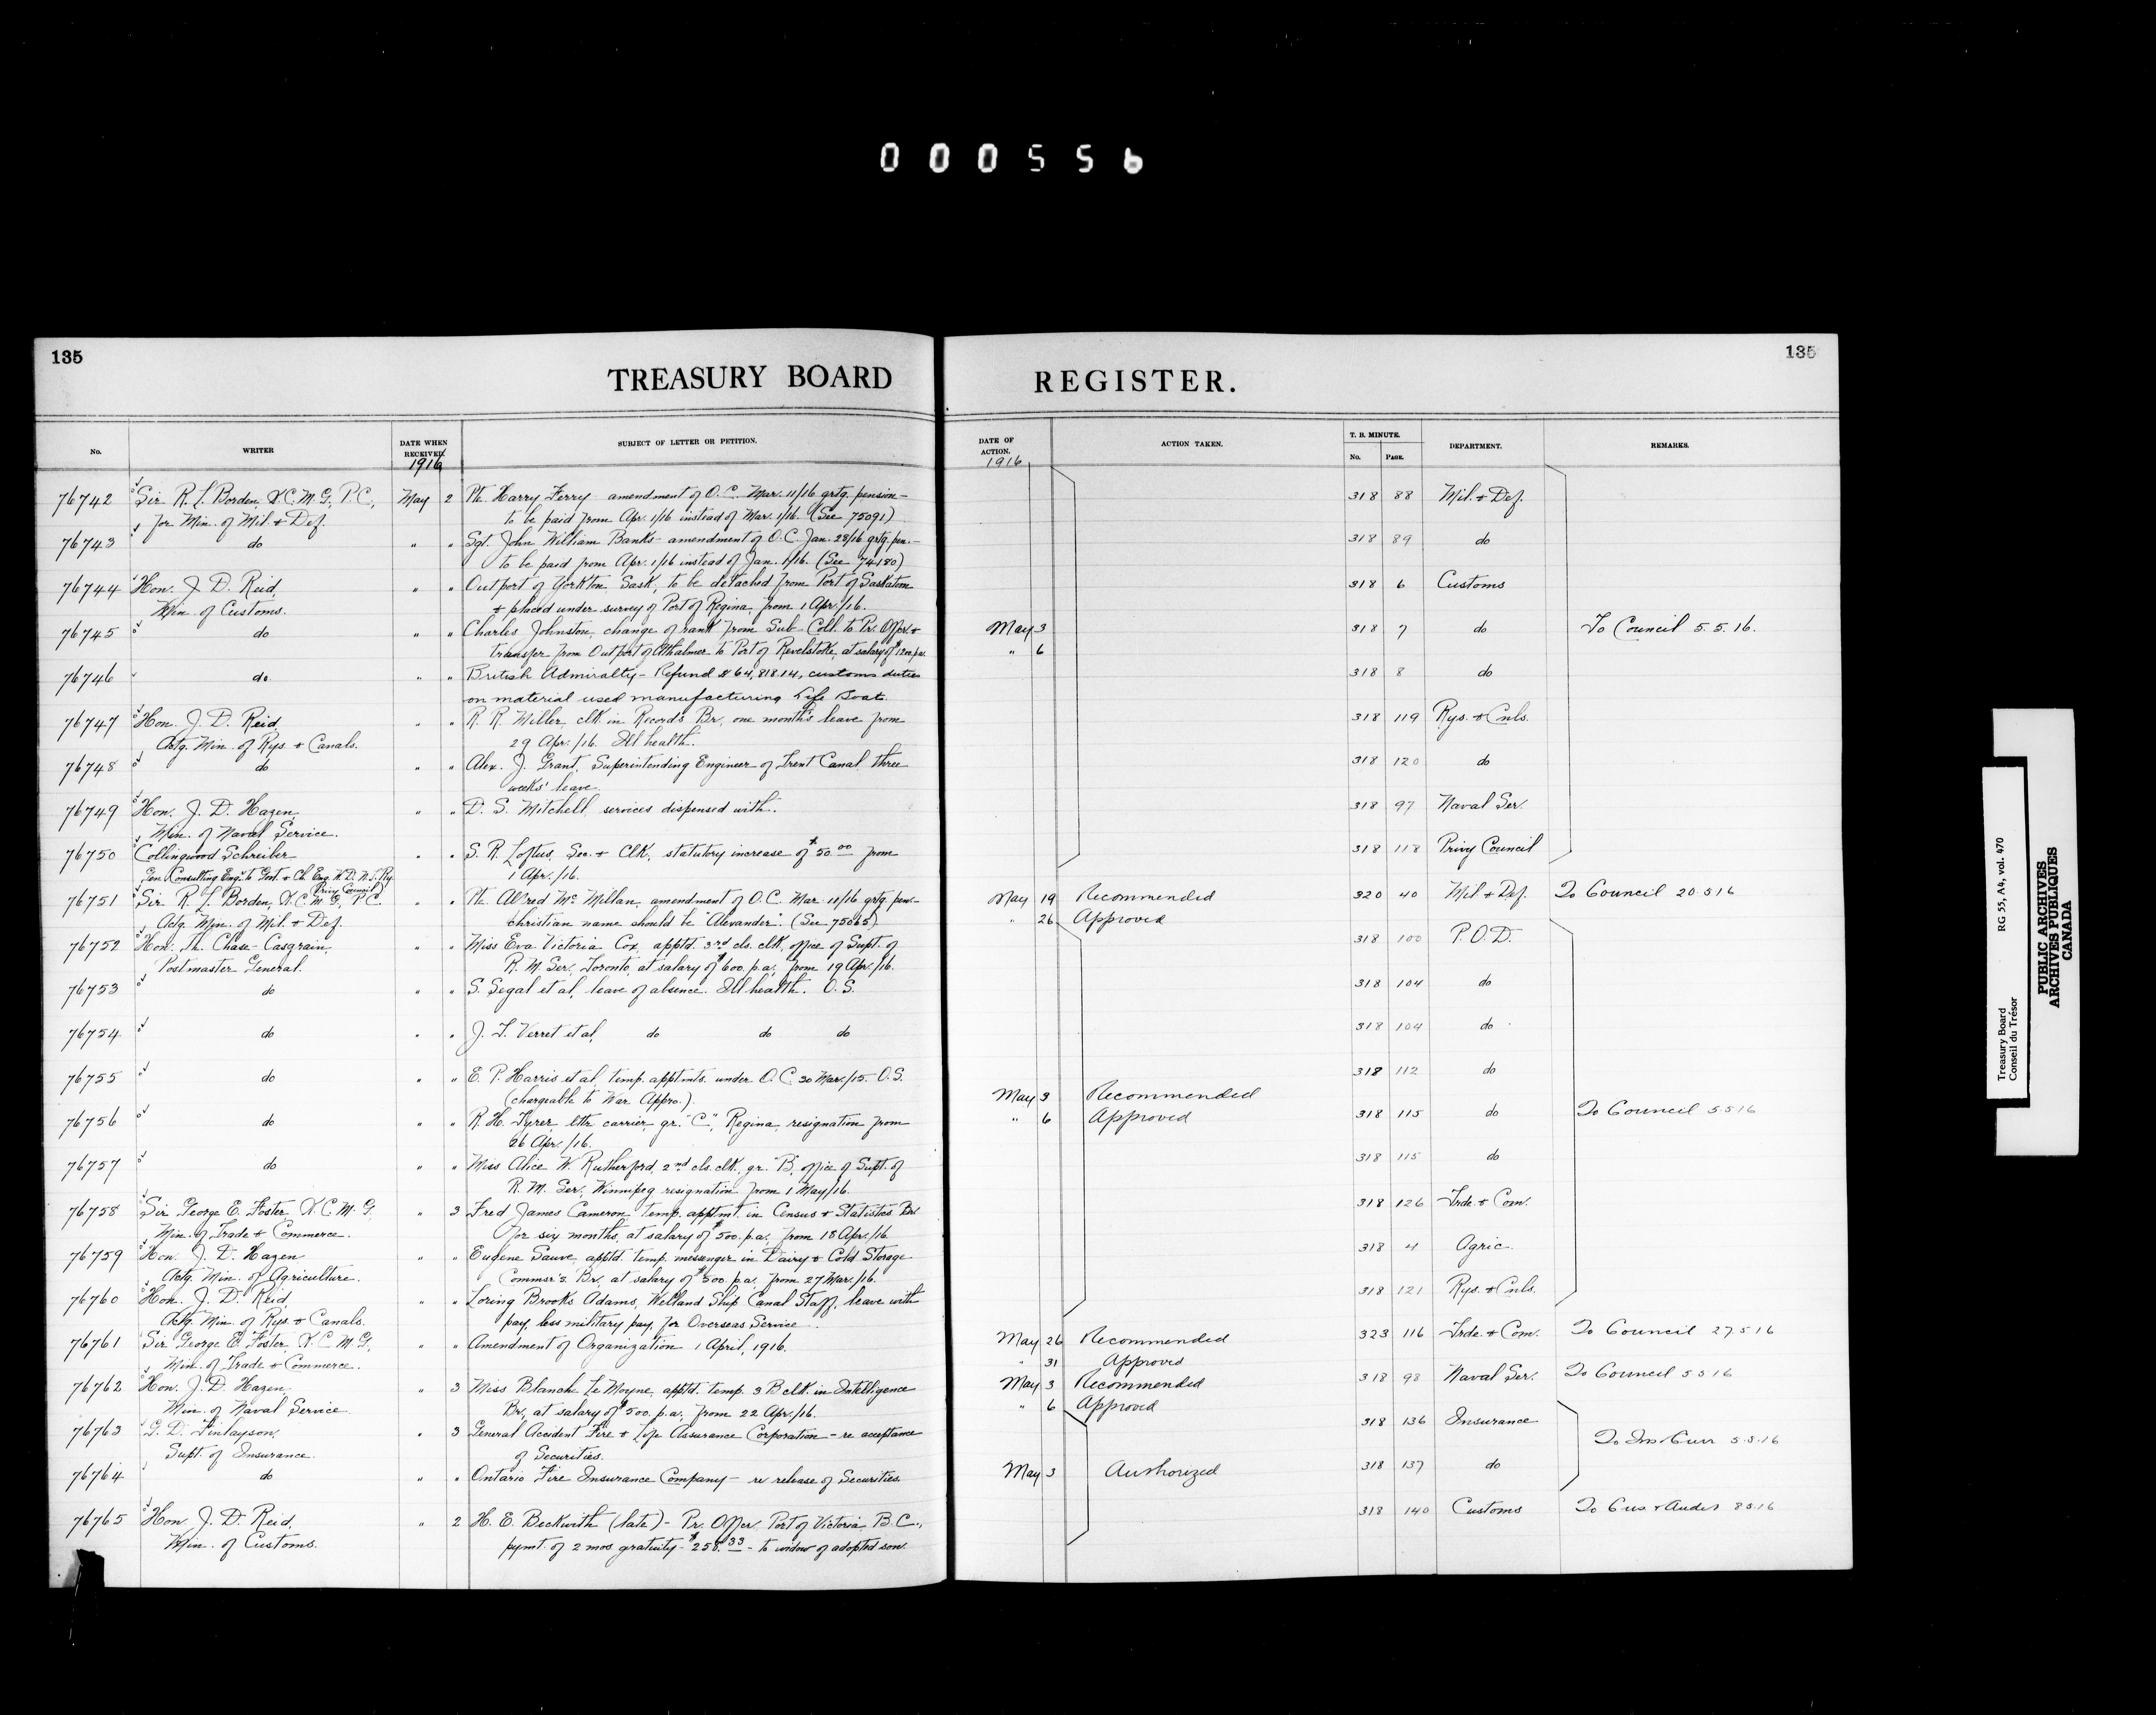 000556
135
TREASURY BOARD
No.
WRITER
DATE WHEN RECEIVED
1916
SUBJECT OF LETTER OR PETITION.
76742 Sir R. L. Borden, K.C.M.G., P.C., May 2 Pte. Harry Ferry amendment of O.C. Mar. 11/16 grtg. pension-
for Min. of Mil. & Def. to be paid from Apr. 1/16 instead of Mar. 1/16. (See 75091)
76743 do " " Sgt. John William Banks- amendment of O.C. Jan. 28/16 grtg. pen.-
to be paid from Apr. 1/16 instead of Jan. 1/16. (See 74180)
76744 Hon. J. D. Reid, " " Outport of Yorkton Sask., to be detached from Port of Saskatoon
Min. of Customs. & placed under survey of Port of Regina, from 1 Apr./16.
76745 do " " Charles Johnston, change of rank from Sub-Coll. to Pr. Offr. &
transfer from Outport of Athalmer to Port of Revelstoke, at salary of $1200 p.a.
76746 do. " " British Admiralty- Refund $64,818.14, customs duties
on material used manufacturing Life Boat.
76747 Hon. J. D. Reid, " " R. R. Miller, clk in Records Br., one month's leave from
Actg. Min. of Rys. & Canals. 29 Apr./16. Ill health.
76748 do " " Alex. J. Grant, Superintending Engineer of Trent Canal, three
weeks' leave.
76749 Hon. J. D. Hazen, " " D. S. Mitchell, services dispensed with.
Min. of Naval Service.
76750 Collingwood Schreiber " " S. R. Loftus, Sec. & Clk, statutory increase of $50.00 from
Gen. Consulting Eng. to Govt. & Ch. Eng. W.D. N.T. Ry. 1 Apr./16.
(Privy Council)
76751 Sir R. L. Borden, K.C.M.G., P.C. " " Pte. Alfred McMillan, amendment of O.C. Mar. 11/16 grtg. pen.-
Actg. Min. of Mil. & Def. christian name should be "Alexander". (See 75065)
76752 Hon. Th. Chase-Casgrain, " " Miss Eva Victoria Cox, apptd. 3rd cls. clk, office of Supt. of
Postmaster General. R. M. Ser., Toronto, at salary of $600. p.a., from 19 Apr./16.
76753 do " " S. Segal et al, leave of absence. Ill health. O.S.
76754 do " " J. L. Verret et al, do do do
76755 do " " E. P. Harris et al, temp. apptmts. under O.C. 30 Mar./15. O.S.
(chargeable to War Appro.)
76756 do " " R. H. Tyrer, lttr carrier, gr. "C", Regina, resignation from
26 Apr./16.
76757 do " " Miss Alice W. Rutherford, 2nd cls. clk., gr. "B", office of Supt. of
R. M. Ser., Winnipeg resignation from 1 May/16.
76758 Sir George E. Foster K.C.M.G. " 3 Fred James Cameron temp. apptmt. in Census & Statistics Br.
Min. of Trade & Commerce. for six months, at salary of $500. p.a., from 18 Apr./16.
76759 Hon. J. D. Hazen " " Eugene Sauve, apptd. temp. messenger in Dairy & Cold Storage
Actg. Min. of Agriculture. Commsr's. Br., at salary of $500. p.a., from 27 Mar./16.
76760 Hon. J. D. Reid, " " Loring Brooks Adams, Welland Ship Canal Staff, leave with
Actg. Min. of Rys. & Canals. pay, less military pay, for Overseas Service.
76761 Sir George E. Foster, K.C.M.G., " " Amendment of Organization 1 April, 1916.
Min. of Trade & Commerce.
76762 Hon. J. D. Hazen, " 3 Miss Blanche Le Moyne, apptd. temp. 3 B clk. in Intelligence
Min. of Naval Service. Br., at salary of $500. p.a., from 22 Apr./16.
76763 G. D. Finlayson, " 3 General Accident Fire & Life Assurance Corporation - re acceptance
Supt. of Insurance. of Securities.
76764 do " " Ontario Fire Insurance Company - re release of Securities.
76765 Hon. J. D. Reid, " 2 H. E. Beckwith (late) - Pr. Offcr. Port of Victoria B.C.,
Min. of Customs. pymt. of 2 mos gratuity- $258.33 - to widow of adopted son.
135
REGISTER.
DATE OF ACTION.
1916
ACTION TAKEN.
T. B. MINUTE.
No.
PAGE.
DEPARTMENT.
REMARKS.
318 88 Mil. & Def.
318 89 do
318 6 Customs
May 3 318 7 do To Council 5.5.16.
" 6
318 8 do
318 119 Rys. & Cnls.
318 120 do
318 97 Naval Ser.
318 118 Privy Council
May 19 Recommended 320 40 Mil. & Def. To Council 20.5.16
" 26 Approved
318 100 P.O.D.
318 104 do
318 104 do
318 112 do
May 3 Recommended
" 6 Approved 318 115 do To Council 5.5.16
318 115 do
318 126 Trde. & Com.
318 4 Agric.
318 121 Rys. & Cnls.
May 26 Recommended 323 116 Trde. & Com. To Council 27.5.16
" 31 Approved
May 3 Recommended 318 98 Naval Ser. To Council 5.5.16
" 6 Approved
318 136 Insurance
To Ins & Curr 5.5.16
May 3 Authorized 318 137 do
318 140 Customs To Cus & Auder 8.5.16
Treasury Board RG 55, A4, vol. 470
Conseil du Trésor
PUBLIC ARCHIVES
ARCHIVES PUBLIQUES
CANADA